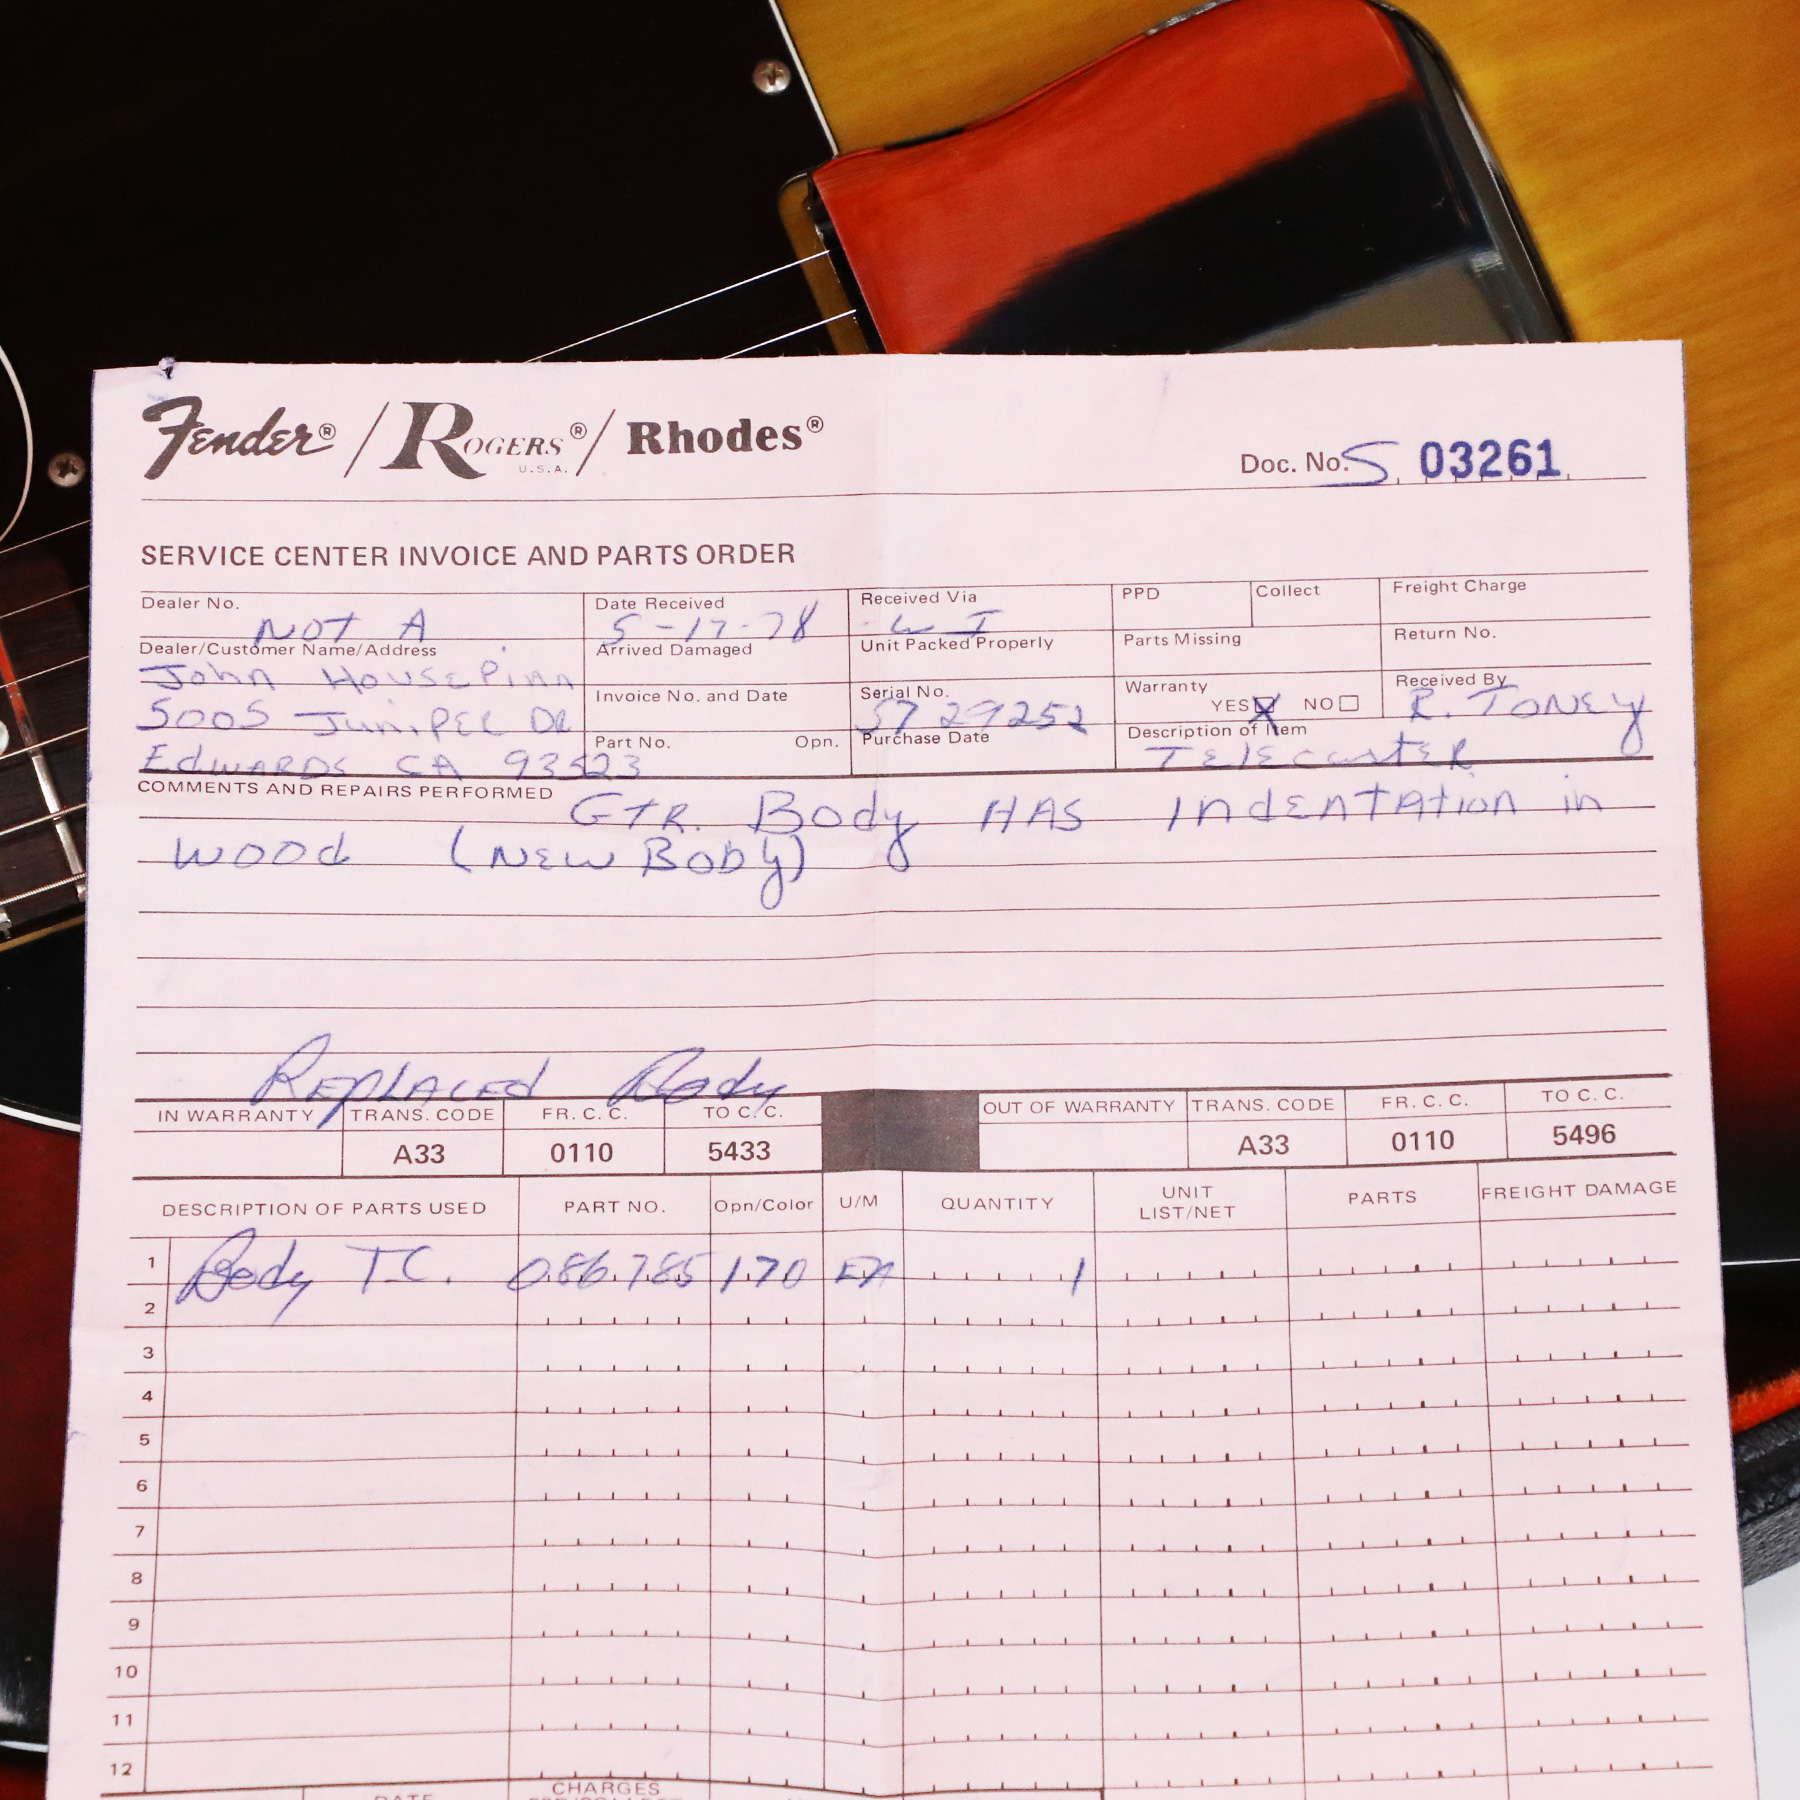 Fender® / ROGERS® U.S.A. / Rhodes®
Doc. No. S 03261
SERVICE CENTER INVOICE AND PARTS ORDER
Dealer No. NOT A
Date Received 5-17-78
Received Via W I
PPD
Collect
Freight Charge
Dealer/Customer Name/Address
Arrived Damaged
Unit Packed Properly
Parts Missing
Return No.
John HousePian
5005 JunipEr DR
Edwards CA 93523
Invoice No. and Date
Serial No. S729252
Warranty YES X NO
Received By R. TONEY
Part No. Opn.
Purchase Date
Description of Item
TElEcastER
COMMENTS AND REPAIRS PERFORMED GTR. Body HAS IndENTATion in
Wood (NEW Body)
REPLACED Body
IN WARRANTY TRANS. CODE FR. C. C. TO C. C. OUT OF WARRANTY TRANS. CODE FR. C. C. TO C. C.
A33 0110 5433 A33 0110 5496
DESCRIPTION OF PARTS USED PART NO. Opn/Color U/M QUANTITY UNIT LIST/NET PARTS FREIGHT DAMAGE
1 Body T.C. 086785 170 EA 1
2
3
4
5
6
7
8
9
10
11
12
DATE CHARGES